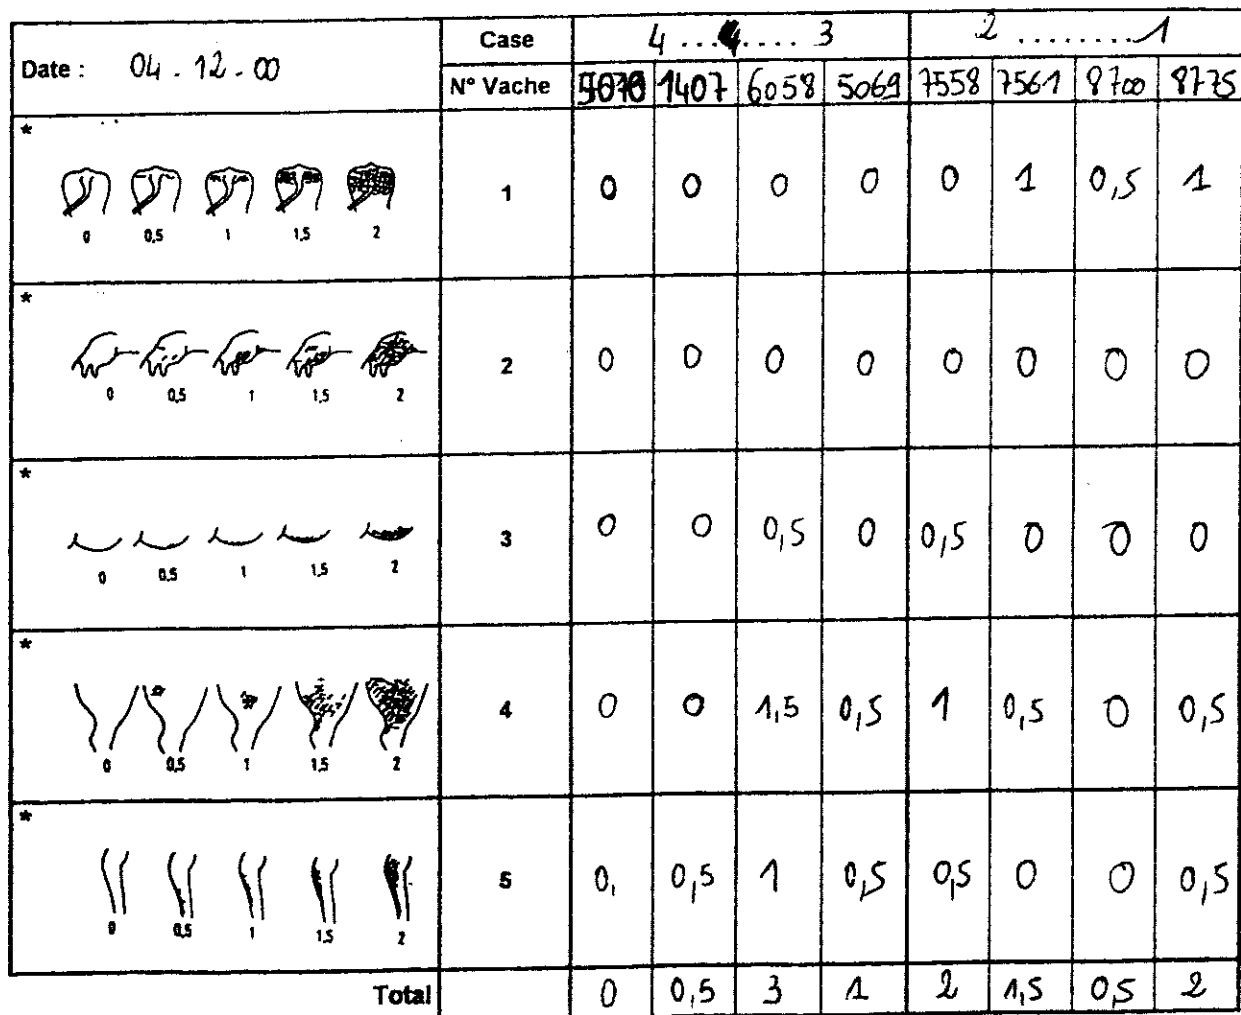 Date : 04 . 12 . 00 Case 4 ... .... 3 2 ........ 1
N° Vache 1407 6058 5069 7558 7561 8700 8775
* 1 0 0 0 0 0 1 0,5 1
0 0,5 1 1,5 2
* 2 0 0 0 0 0 0 0 0
0 0,5 1 1,5 2
* 3 0 0 0,5 0 0,5 0 0 0
0 0,5 1 1,5 2
* 4 0 0 1,5 0,5 1 0,5 0 0,5
0 0,5 1 1,5 2
* 5 0, 0,5 1 0,5 0,5 0 0 0,5
0 0,5 1 1,5 2
Total 0 0,5 3 1 2 1,5 0,5 2